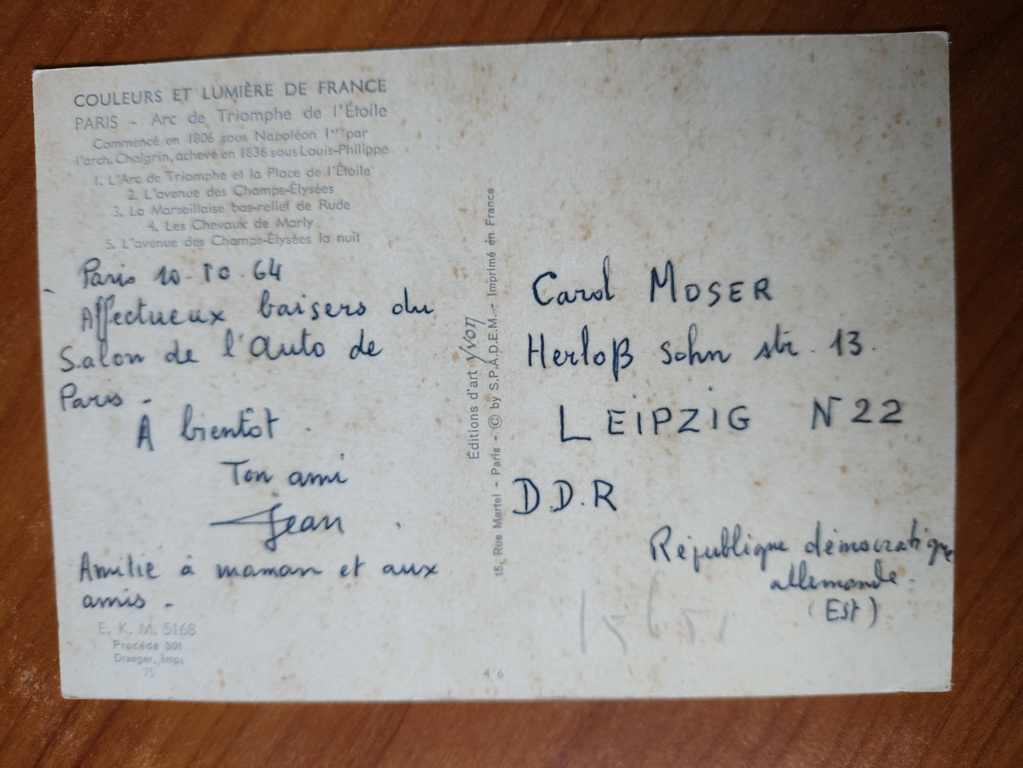 COULEURS ET LUMIÈRE DE FRANCE
PARIS - Arc de Triomphe de l'Étoile
Commencé en 1806 sous Napoléon Ier par
l'arch. Chalgrin, achevé en 1836 sous Louis-Philippe
1. L'Arc de Triomphe et la Place de l'Étoile
2. L'avenue des Champs-Élysées
3. La Marseillaise bas-relief de Rude
4. Les Chevaux de Marly
5. L'avenue des Champs-Élysées la nuit
Paris 10-10-64
Affectueux baisers du
Salon de l'auto de
Paris.
A bientôt.
Ton ami
Jean.
Amitié à maman et aux
amis.
E. K. M. 5168
Procédé 301
Draeger, Imp.
75
Éditions d'art Yvon
15, Rue Martel - Paris - © by S.P.A.D.E.M. - Imprimé en France
46
Carol MOSER
Herloß sohn str. 13.
LEIPZIG N 22
D.D.R
République démocratique
allemande.
(Est)